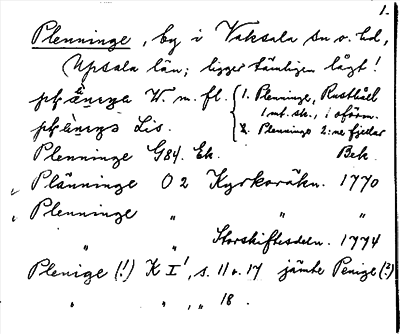 1.
Plenninge, by i Vaksala sn o. hd,
Upsala län; ligger tämligen lågt!
W. m. fl. { 1. Plenninge, Rusthåll
1 mt. sk., i oform.
Lis. 2. Plenninge 2:ne fjerdar
Plenninge G84. Ek. Bek.
Plänninge O 2 Kyrkoräkn. 1770
Plenninge " " "
" " Storskiftesdeln. 1774
Plenige (!) K I¹, s. 11 o. 17 jämte Penige (?)
" " , " 18.